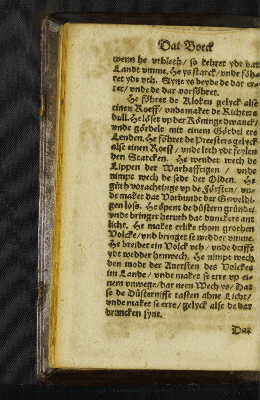 Dat Boeck
wenn he vthleth / so kehret ydt dat
Landt vmme. He ys starck / vnde föh-
ret ydt vth. Syne ys de yde de dar er-
ret / vnde de dar vorföhret.
He föhret de Kloken gelyck alse
einen Roeff / vnde maket de Richters
dull. He löset vp der Köninge dwanck /
vnde gördelt mit einem Gördel ere
Lenden. He föhret de Preesters gelyck
alse einen Roeff / vnde leth ydt feylen
den Starcken. He wendet wech de
Lippen der Warhafftigen / vnde
nimpt wech de sede der Olden. He
güth vorachtinge vp de Försten / vn-
de maket dat Vorbundt der Geweldi-
gen loß. He öpent de düstern gründe /
vnde bringet heruth dat dunckere ant
licht. He maket etlike thom grothen
Volcke / vnd bringet se wedder vmme.
He breidet ein Volck vth / vnde drifft
ydt wedder henwech. He nimpt wech
den mode der Auersten des Volckes
im Lande / vnde maket se erre vp ei-
nem vnwege / dar neen Wech ys / Dat
se de Düsternisse tasten ahne Licht /
vnde maket se erre / gelyck alse de dar
druncken synt.
Dat